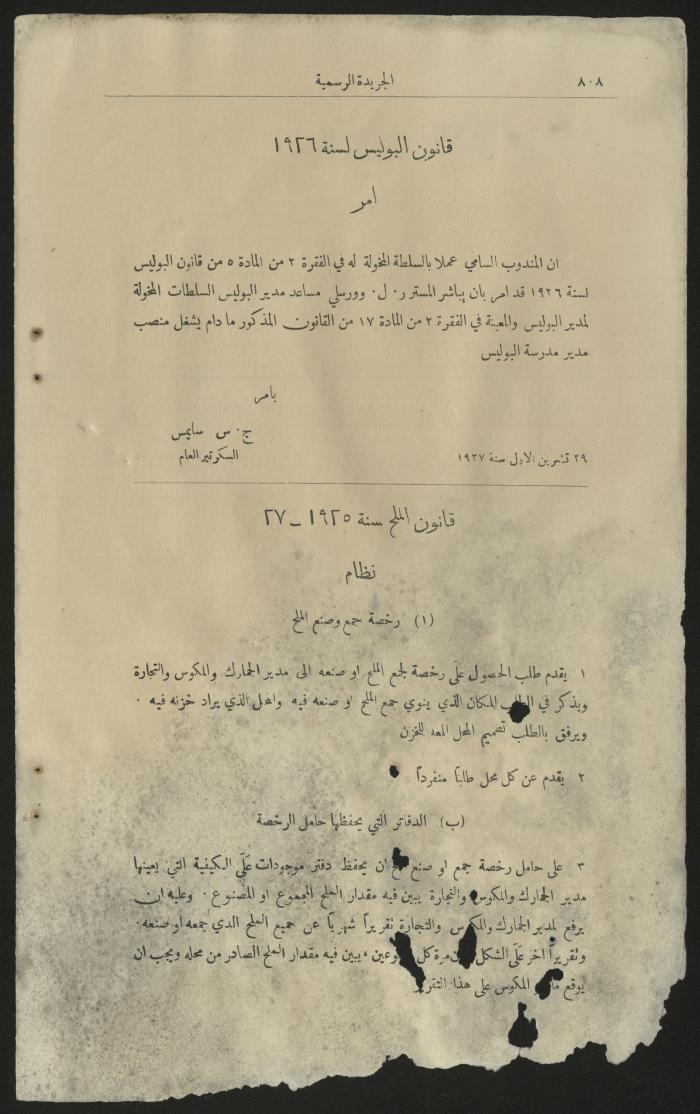 ٨٠٨
الجريدة الرسمية
قانون البوليس لسنة ١٩٢٦
امر
ان المندوب السامي عملا بالسلطة المخولة له في الفقرة ٢ من المادة ٥ من قانون البوليس
لسنة ١٩٢٦ قد امر بان يباشر المستر ر. ل. وورسلي مساعد مدير البوليس السلطات المخولة
لمدير البوليس والمعينة في الفقرة ٢ من المادة ١٧ من القانون المذكور ما دام يشغل منصب
مدير مدرسة البوليس
بامر
ج. س سايمس
السكرتير العام
٢٩ تشرين الاول سنة ١٩٢٧
قانون الملح سنة ١٩٢٥ – ٢٧
نظام
(١) رخصة جمع وصنع الملح
١ يقدم طلب الحصول على رخصة لجمع الملح او صنعه الى مدير الجمارك والمكوس والتجارة
ويذكر في المكان الذي ينوي جمع الملح او صنعه فيه والمحل الذي يراد خزنه فيه .
ويرفق بالطلب تصميم المحل المعد للخزن
٢ يقدم عن كل محل طلبًا منفردًا
(ب) الدفاتر التي يحفظها حامل الرخصة
٣ على حامل رخصة جمع او صنع ان يحفظ دفتر موجودات على الكيفية التي يعينها
مدير الجمارك والمكوس والتجارة يبين فيه مقدار الملح المجموع او المصنوع . وعليه ان
يرفع لمدير الجمارك والمكوس والتجارة تقريرًا شهريًا عن جميع الملح الذي جمعه او صنعه.
وتقريرًا اخر على الشكل مرة كل ، يبين فيه مقدار الملح الصادر من محله ويجب ان
يوقع المكوس على هذا